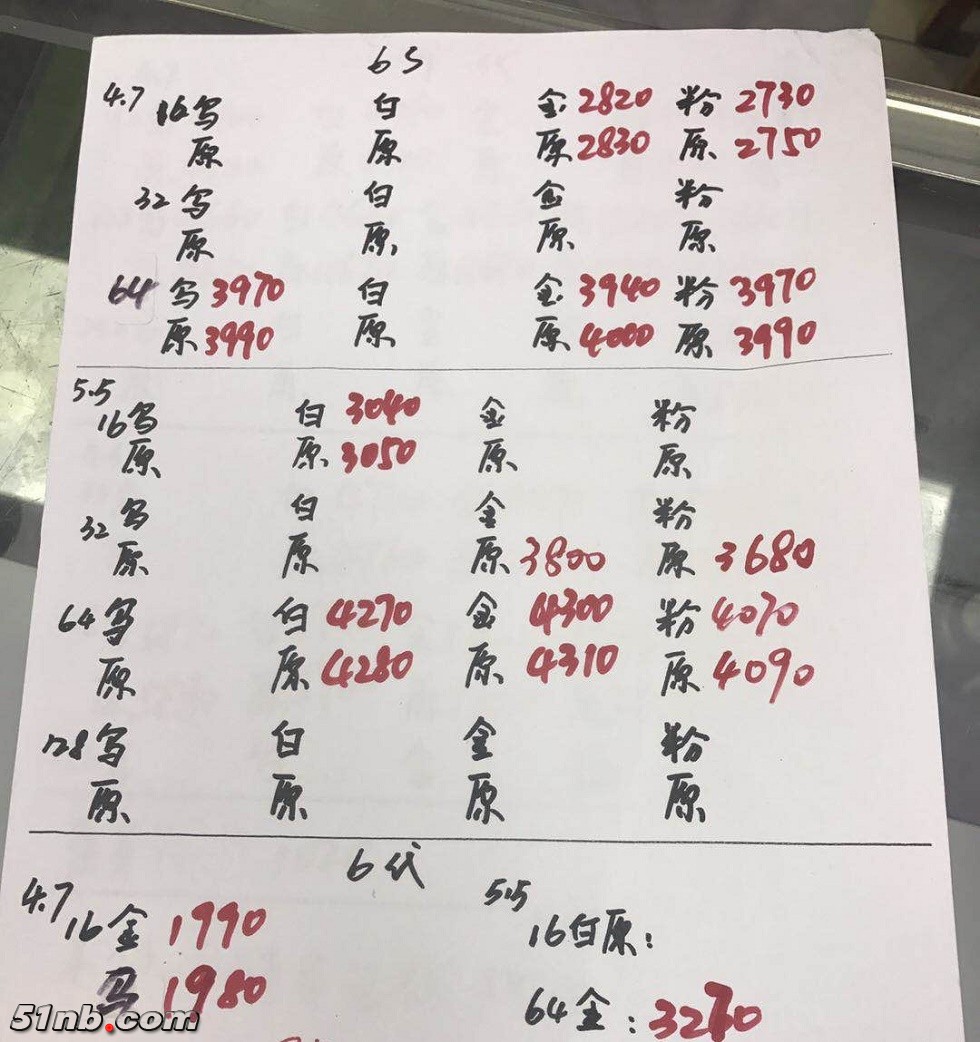 6S
4.7 16乌 白 金2820 粉2730
原 原 原2830 原2750
32乌 白 金 粉
原 原 原 原
64乌3970 白 金3940 粉3970
原3990 原 原4000 原3990
5.5
16乌 白3040 金 粉
原 原3050 原 原
32乌 白 金 粉
原 原 原3800 原3680
64乌 白4270 金4300 粉4070
原 原4280 原4310 原4090
128乌 白 金 粉
原 原 原 原
6代
4.7 16金1990
1980
5.5
16白原:
64金:
51nb.com